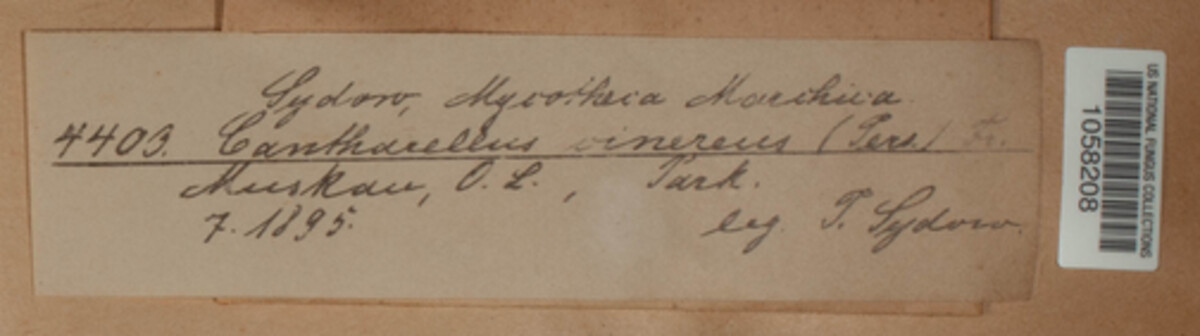 Sydow, Mycotheca Marchica.
4403. Cantharellus cinereus (Pers.) Fr.
Muskau, O. L., Park.
7. 1895.
leg. P. Sydow.
US NATIONAL FUNGUS COLLECTIONS
1058208